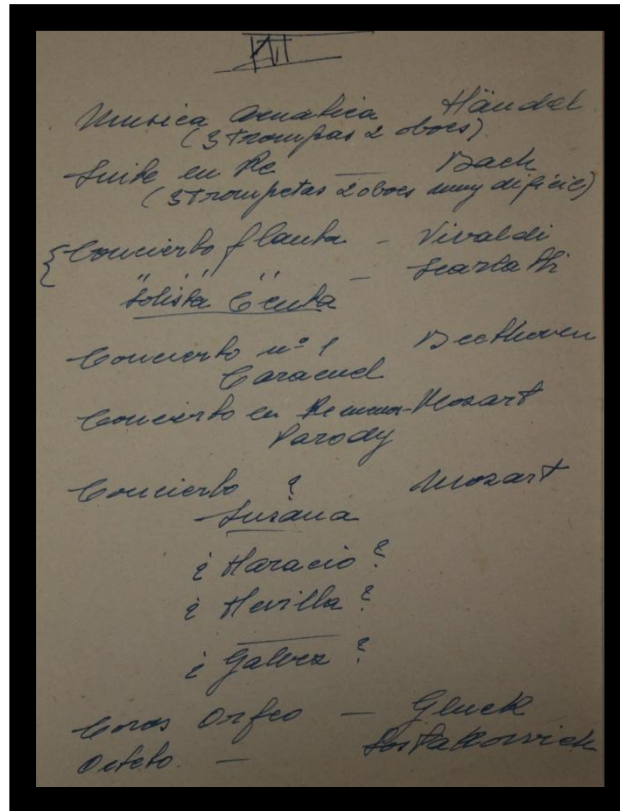 VII
Musica acuatica Händel
(3 Trompas 2 oboes)
Suite en Re — Bach
(3 Trompetas 2 oboes muy dificil)
Concierto flauta - Vivaldi
" " " - Scarlatti
Solista
Concierto nº 1 Beethoven
Caracuel
Concierto en Re menor - Mozart
Parody
Concierto ? Mozart
Susana
¿ Horacio ?
¿ Hevilla ?
¿ Galvez ?
Coros Orfeo — Gluck
Octeto. — Sostakovich